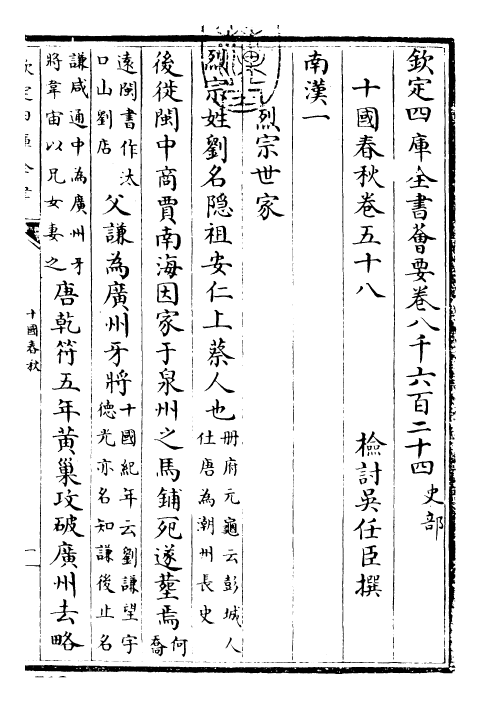 欽定四庫全書薈要卷八千六百二十四 史部
十國春秋卷五十八
檢討吳任臣撰
南漢一
烈宗世家
烈宗姓劉名隐祖安仁上蔡人也冊府元龜云彭城人仕唐為潮州長史
後徙閩中商賈南海因家于泉州之馬鋪死遂塟焉何喬
遠閩書作汰口山劉店父謙為廣州牙將十國紀年云劉謙望字德光亦名知謙後止名
謙咸通中為廣州牙將韋宙以兄女妻之唐乾符五年黄巢攻破廣州去略
十國春秋
一